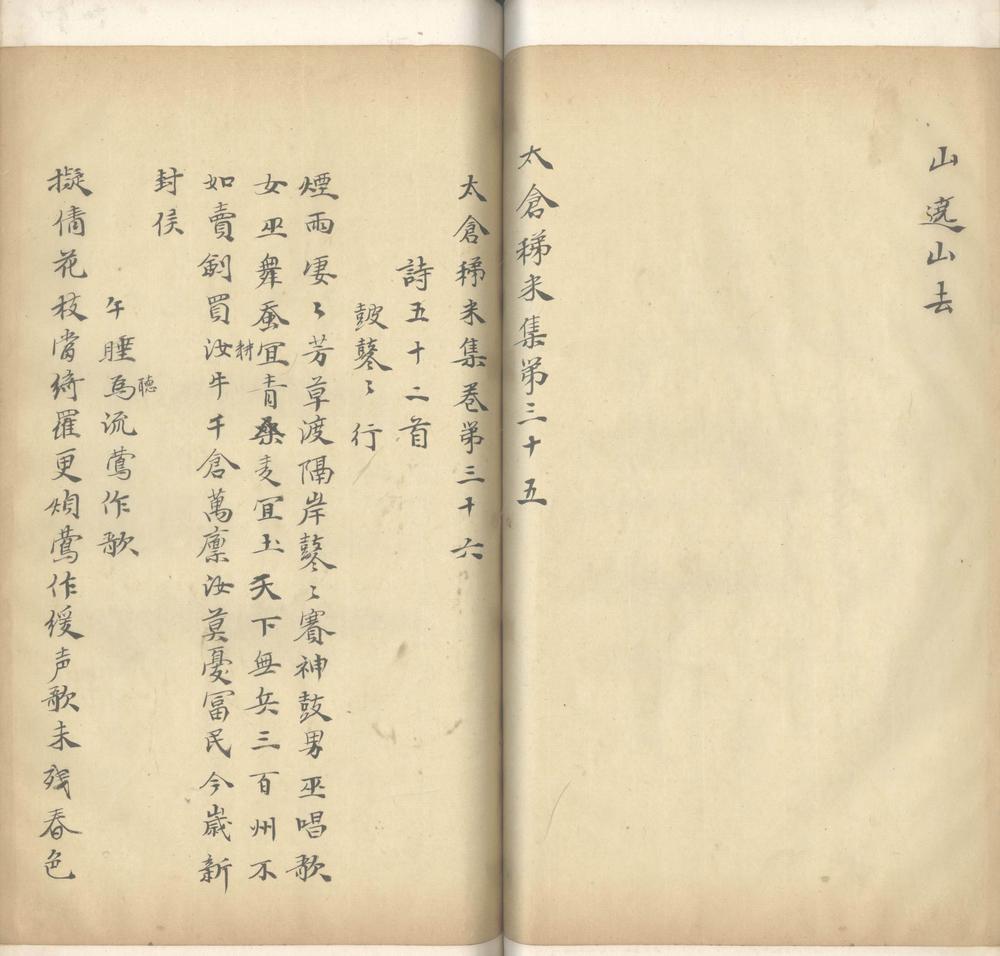 山遶山去
太倉稊米集第三十五
太倉稊米集卷第三十六
詩五十二首
鼓鼕〻行
煙雨凄〻芳草渡隔岸鼕〻賽神鼓男巫唱歌
女巫舞蚕宜青桒麦宜土天下無兵三百州不
耕
如賣劍買汝牛千倉萬廪汝莫憂冨民今歳新
封侯
聴
午睡為流鶯作歌
擬倩花枝當綺羅更煩鶯作緩声歌未残春色